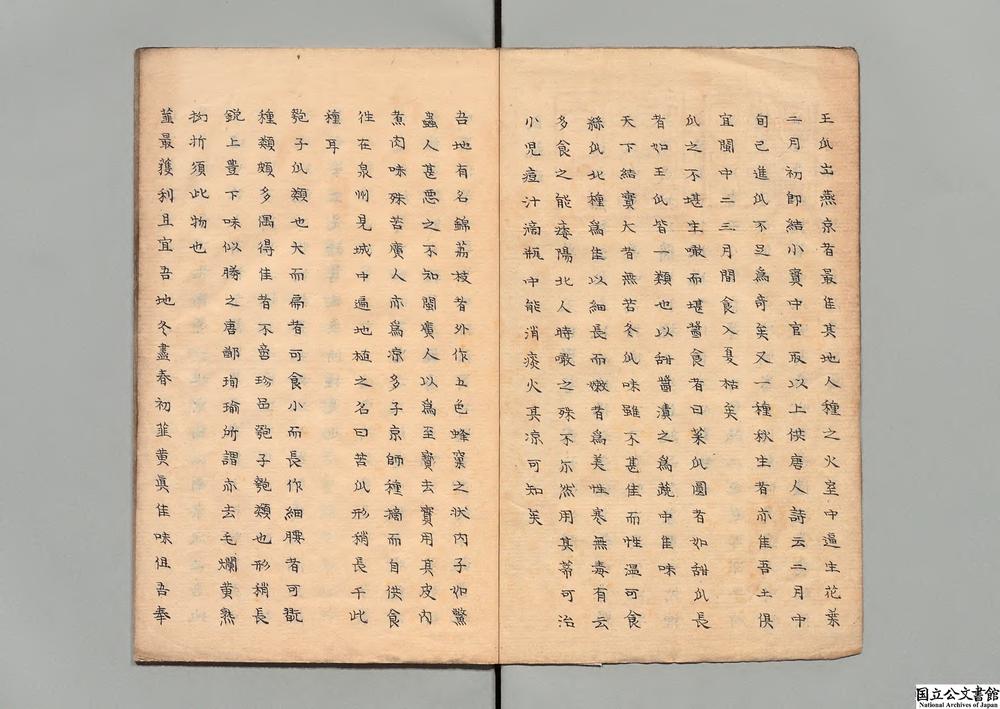 王瓜出燕京者最佳其地人種之火室中逼生花葉
二月初即結小實中官取以上供唐人詩云二月中
旬已進瓜不足為奇矣又一種秋生者亦佳吾土俱
宜閩中二三月間食入夏枯矣
瓜之不堪生噉而堪醬食者曰菜瓜圓者如甜瓜長
者如王瓜皆一類也以甜醬漬之為蔬中佳味
天下結實大者無若冬瓜味雖不甚佳而性溫可食
絲瓜北種為佳以細長而嫩者為美性寒無毒有云
多食之能痿陽北人時噉之殊不尔然用其蒂可治
小児痘汁滴瓶中能消痰火其凉可知矣
吾地有名錦荔枝者外作五色蜂窠之状内子如鱉
蟲人甚悪之不知閩廣人以為至寳去實用其皮内
煮肉味殊苦廣人亦為凉多子京師種摘而自供食
性在泉州見城中遍地植之名曰苦瓜形稍長于此
種耳
匏子瓜類也大而扁者可食小而長作細腰者可翫
種類頗多偶得佳者不啻珍邑匏子匏類也形稍長
鋭上豊下味似勝之唐鄙珣瑜所謂亦去毛爛黄熟
拗折須此物也
韮最獲利且宜吾地冬盡春初韮黄眞佳味但吾奉
国立公文書館
National Archives of Japan